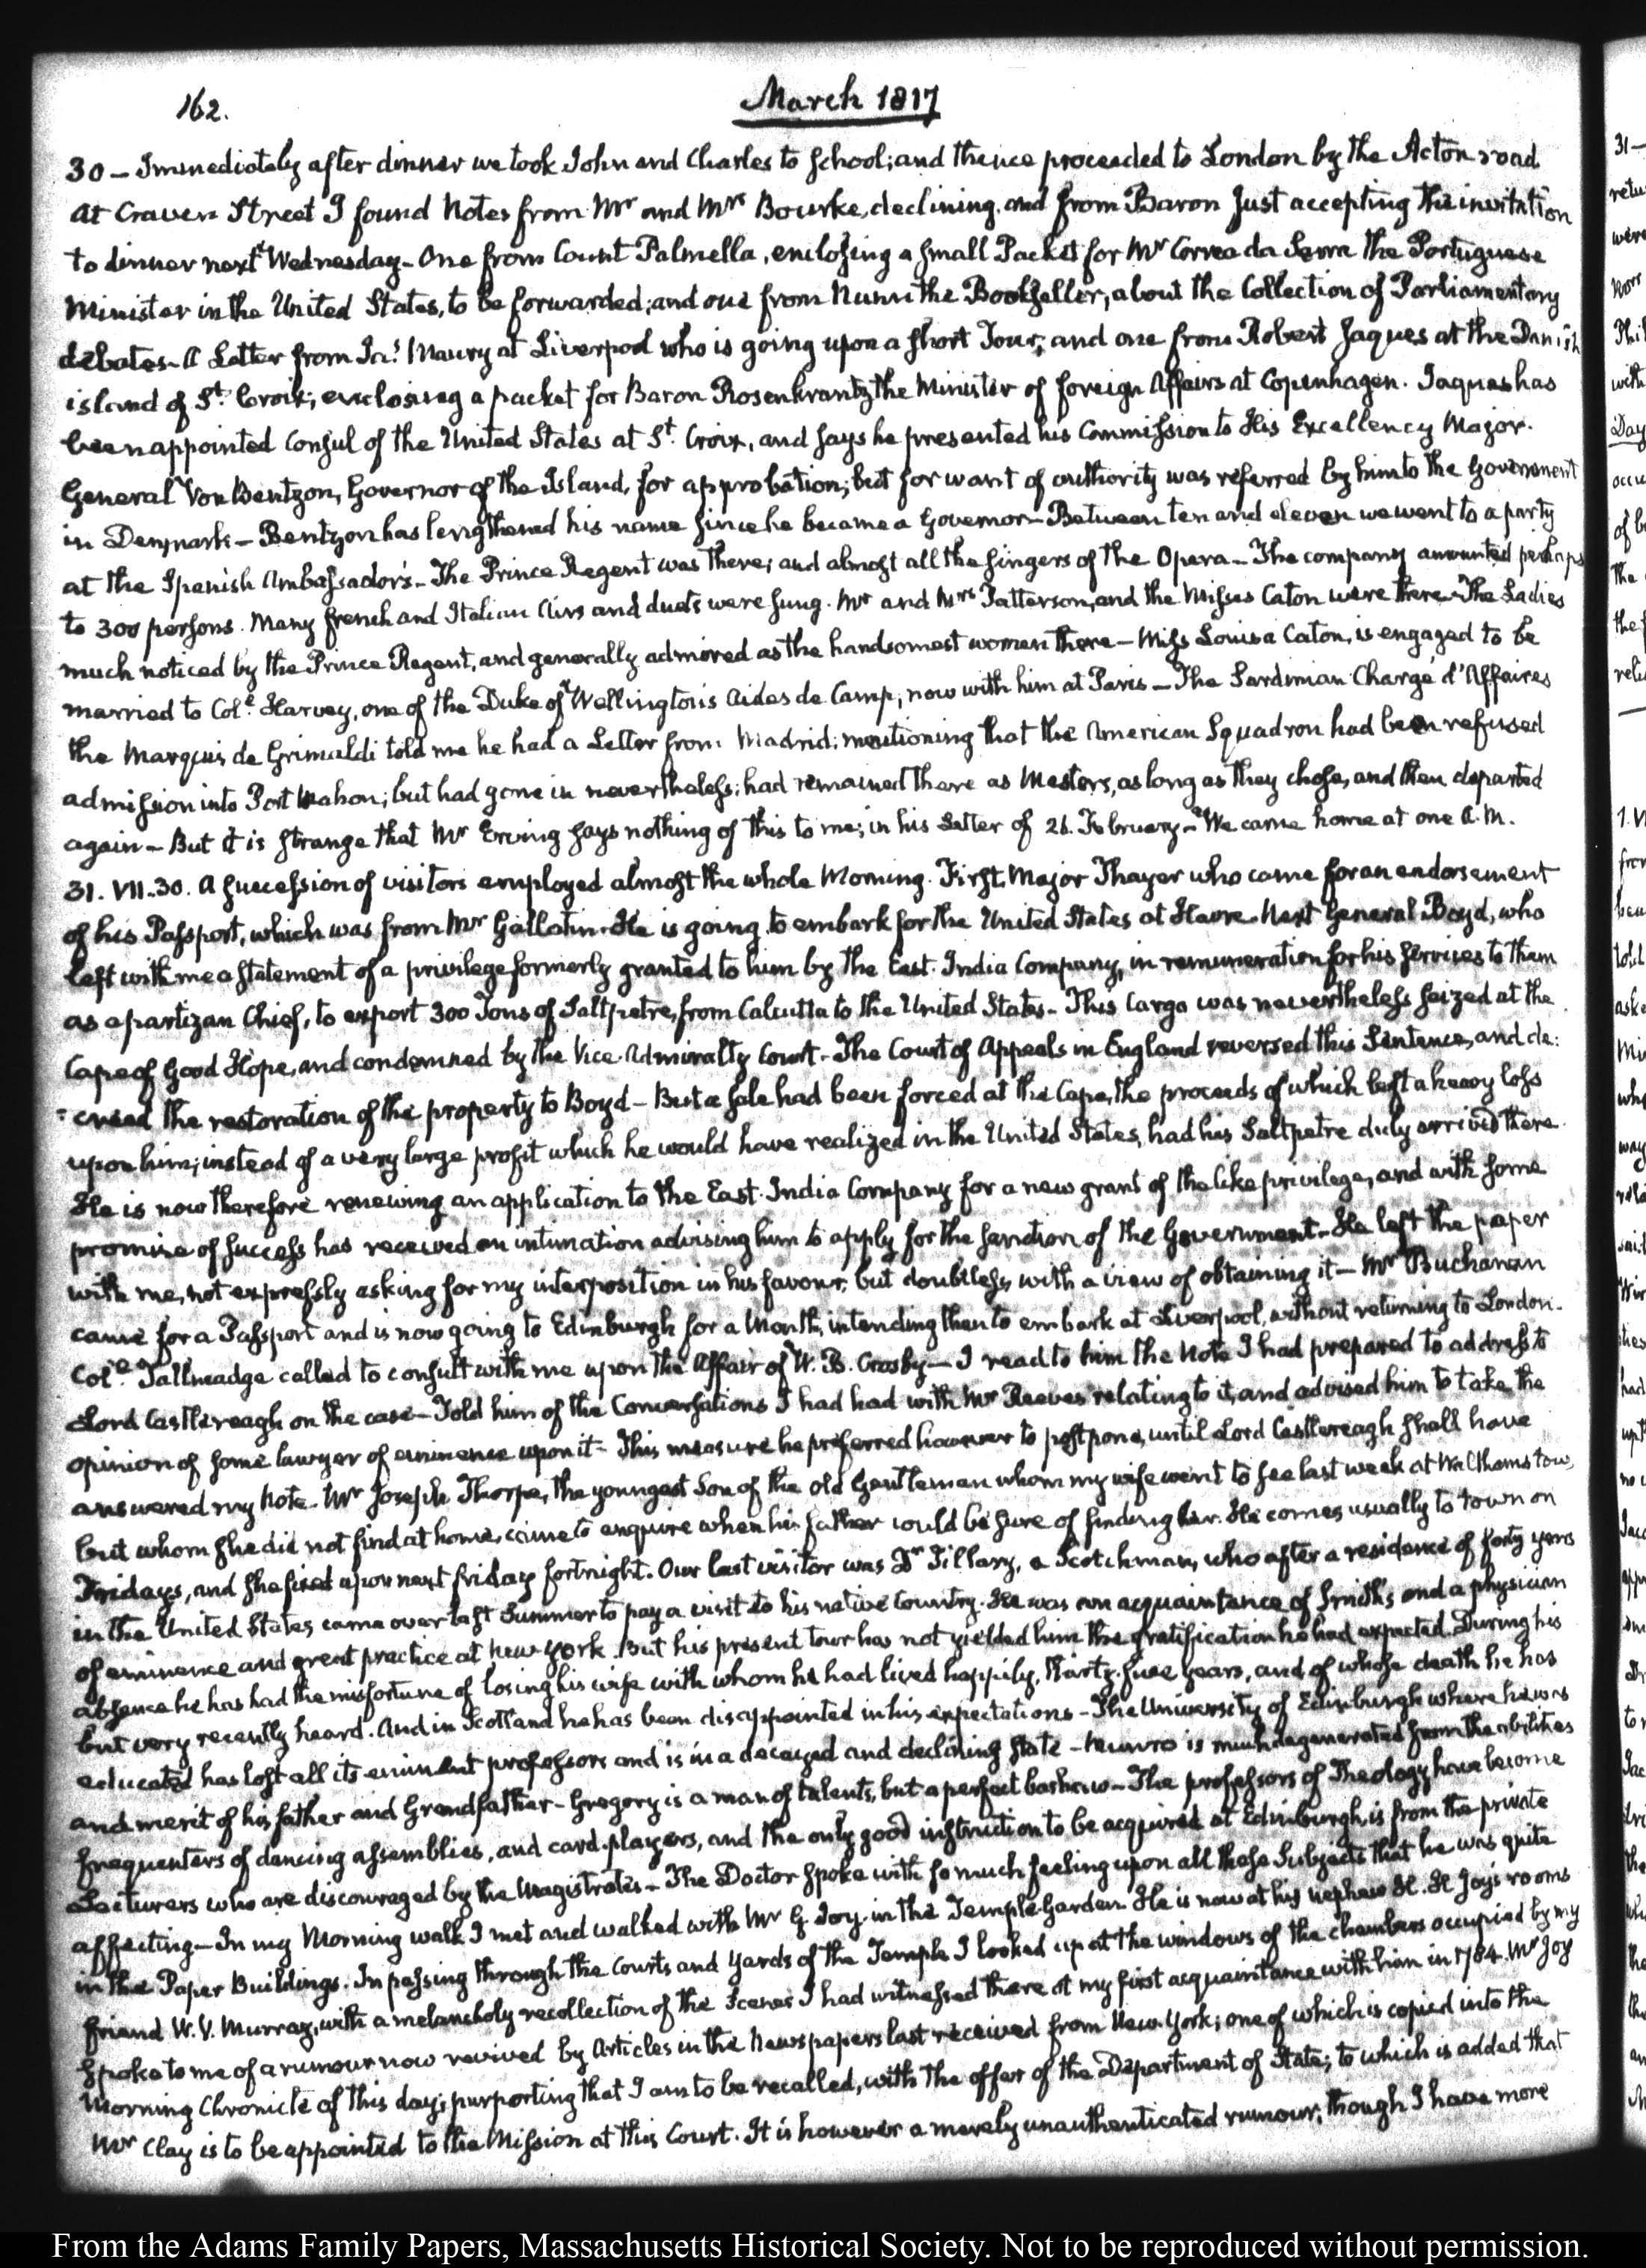 162.
March 1817
30 – Immediately after dinner we took John and Charles to School; and thence proceeded to London by the Acton road
At Craven Street I found Notes from Mr and Mrs Bourke, declining, and from Baron Just accepting the invitation
to dinner next Wednesday – One from Count Palmella, enclosing a small Packet for Mr Correa da Serra the Portuguese
Minister in the United States, to be forwarded; and one from Nunn the Bookseller, about the Collection of Parliamentary
debates – A Letter from Jas. Maury at Liverpool who is going upon a short Tour; and one from Robert Jaques at the Danish
island of St. Croix; enclosing a packet for Baron Rosenkrantz the Minister of foreign Affairs at Copenhagen. Jaques has
been appointed Consul of the United States at St. Croix, and says he presented his Commission to His Excellency Major-
General Von Bentzon, Governor of the Island, for approbation; but for want of authority was referred by him to the Government
in Denmark – Bentzon has lengthened his name since he became a Governor – Between ten and eleven we went to a party
at the Spanish Ambassador's – The Prince Regent was there; and almost all the singers of the Opera – The company amounted perhaps
to 300 persons. Many French and Italian Airs and duets were sung. Mr and Mrs Patterson, and the Misses Caton were there – The Ladies
much noticed by the Prince Regent, and generally admired as the handsomest women there – Miss Louisa Caton, is engaged to be
married to Coll. Harvey, one of the Duke of Wellington's Aides de Camp, now with him at Paris – The Sardinian Chargé d'Affaires
the Marquis de Grimaldi told me he had a Letter from Madrid; mentioning that the American Squadron had been refused
admission into Port Mahon; but had gone in nevertheless; had remained there as Masters, as long as they chose, and then departed
again – But it is strange that Mr Erving says nothing of this to me; in his Letter of 26. February – We came home at one A.M.
31. VII..30. A succession of visitors employed almost the whole Morning. First, Major Thayer who came for an endorsement
of his Passport, which was from Mr Gallatin. He is going to embark for the United States at Havre. Next General Boyd, who
left with me a statement of a privilege formerly granted to him by the East-India Company, in remuneration for his services to them
as a partizan Chief, to export 300 Tons of Saltpetre, from Calcutta to the United States – This Cargo was nevertheless seized at the
Cape of Good Hope, and condemned by the Vice Admiralty Court – The Court of Appeals in England reversed this Sentence, and de:
:creed the restoration of the property to Boyd – But a sale had been forced at the Cape, the proceeds of which left a heavy loss
upon him; instead of a very large profit which he would have realized in the United States, had his Saltpetre duly arrived there.
He is now therefore renewing an application to the East-India Company for a new grant of the like privilege, and with some
promise of success has received an intimation advising him to apply for the sanction of the Government – He left the paper
with me, not expressly asking for my interposition in his favour, but doubtless, with a view of obtaining it – Mr Buchanan
came for a Passport and is now going to Edinburgh for a Month, intending then to embark at Liverpool, without returning to London.
Coll. Tallmadge called to consult with me upon the Affair of W. B. Crosby – I read to him the Note I had prepared to address to
Lord Castlereagh on the case – Told him of the Conversations I had had with Mr Reeves relating to it, and advised him to take the
opinion of some lawyer of eminence upon it – This measure he preferred however to postpone, until Lord Castlereagh shall have
answered my Note – Mr Joseph Thorpe, the youngest Son of the old Gentleman whom my wife went to see last week at Walthamstow,
but whom she did not find at home, came to enquire when his father could be sure of finding her. He comes usually to town on
Fridays, and she fixed upon next Friday fortnight. Our last visitor was Dr Tillary, a Scotchman, who after a residence of forty years
in the United States came over last Summer to pay a visit to his native Country. He was an acquaintance of Smith's and a physician
of eminence and great practice at New-York. But his present tour has not yielded him the gratification he had expected. During his
absence he has had the misfortune of losing his wife with whom he had lived happily, thirty-five years, and of whose death he has
but very recently heard. And in Scotland he has been disappointed in his expectations – The University of Edinburgh where he was
educated has lost all its eminent professors and is in a decayed and declining state – Munro is much degenerated from the abilities
and merit of his father and Grandfather – Gregory is a man of talents, but a perfect bashaw – The professors of Theology have become
frequenters of dancing assemblies, and card-players, and the only good instruction to be acquired at Edinburgh, is from the private
Lecturers who are discouraged by the Magistrates – The Doctor spoke with so much feeling upon all these Subjects that he was quite
affecting – In my Morning walk I met and walked with Mr G. Joy in the Temple Garden. He is now at his nephew H. H Joy's rooms
in the Paper Buildings. In passing through the Courts and Yards of the Temple I looked up at the windows of the chambers occupied by my
friend W. V. Murray, with a melancholy recollection of the Scenes I had witnessed there at my first acquaintance with him in 1784. Mr Joy
spoke to me of a rumour now revived by Articles in the Newspapers last received from New-York; one of which is copied into the
Morning Chronicle of this day; purporting that I am to be recalled, with the offer of the Department of State; to which is added that
Mr Clay is to be appointed to the Mission at this Court. It is however a merely unauthenticated rumour, though I have more
From the Adams Family Papers, Massachusetts Historical Society. Not to be reproduced without permission.